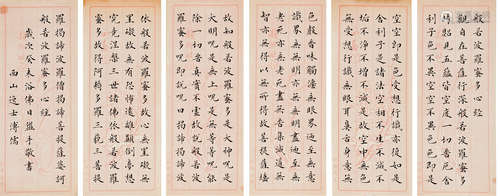 般若波羅蜜多心經
觀自在菩薩行深般若波羅蜜多
時照見五蘊皆空度一切苦厄舍
利子色不異空空不異色色即是
空空即是色受想行識亦復如是
舍利子是諸法空相不生不滅不
垢不淨不增不減是故空中無色
無受想行識無眼耳鼻舌身意無
色聲香味觸法無眼界乃至無意
識界無無明亦無無明盡乃至無
老死亦無老死盡無苦集滅道無
智亦無得以無所得故菩提薩埵
故知般若波羅蜜多是大神呪是
大明呪是無上呪是無等等呪能
除一切苦真實不虛故說般若波
羅蜜多呪即說呪曰揭諦揭諦波
依般若波羅蜜多故心無罣礙無
罣礙故無有恐怖遠離顛倒夢想
究竟涅槃三世諸佛依般若波羅
蜜多故得阿耨多羅三藐三菩提
羅揭諦波羅僧揭諦菩提薩婆訶
般若波羅蜜多心經
歲次癸未浴佛日盥手敬書
西山逸士溥儒